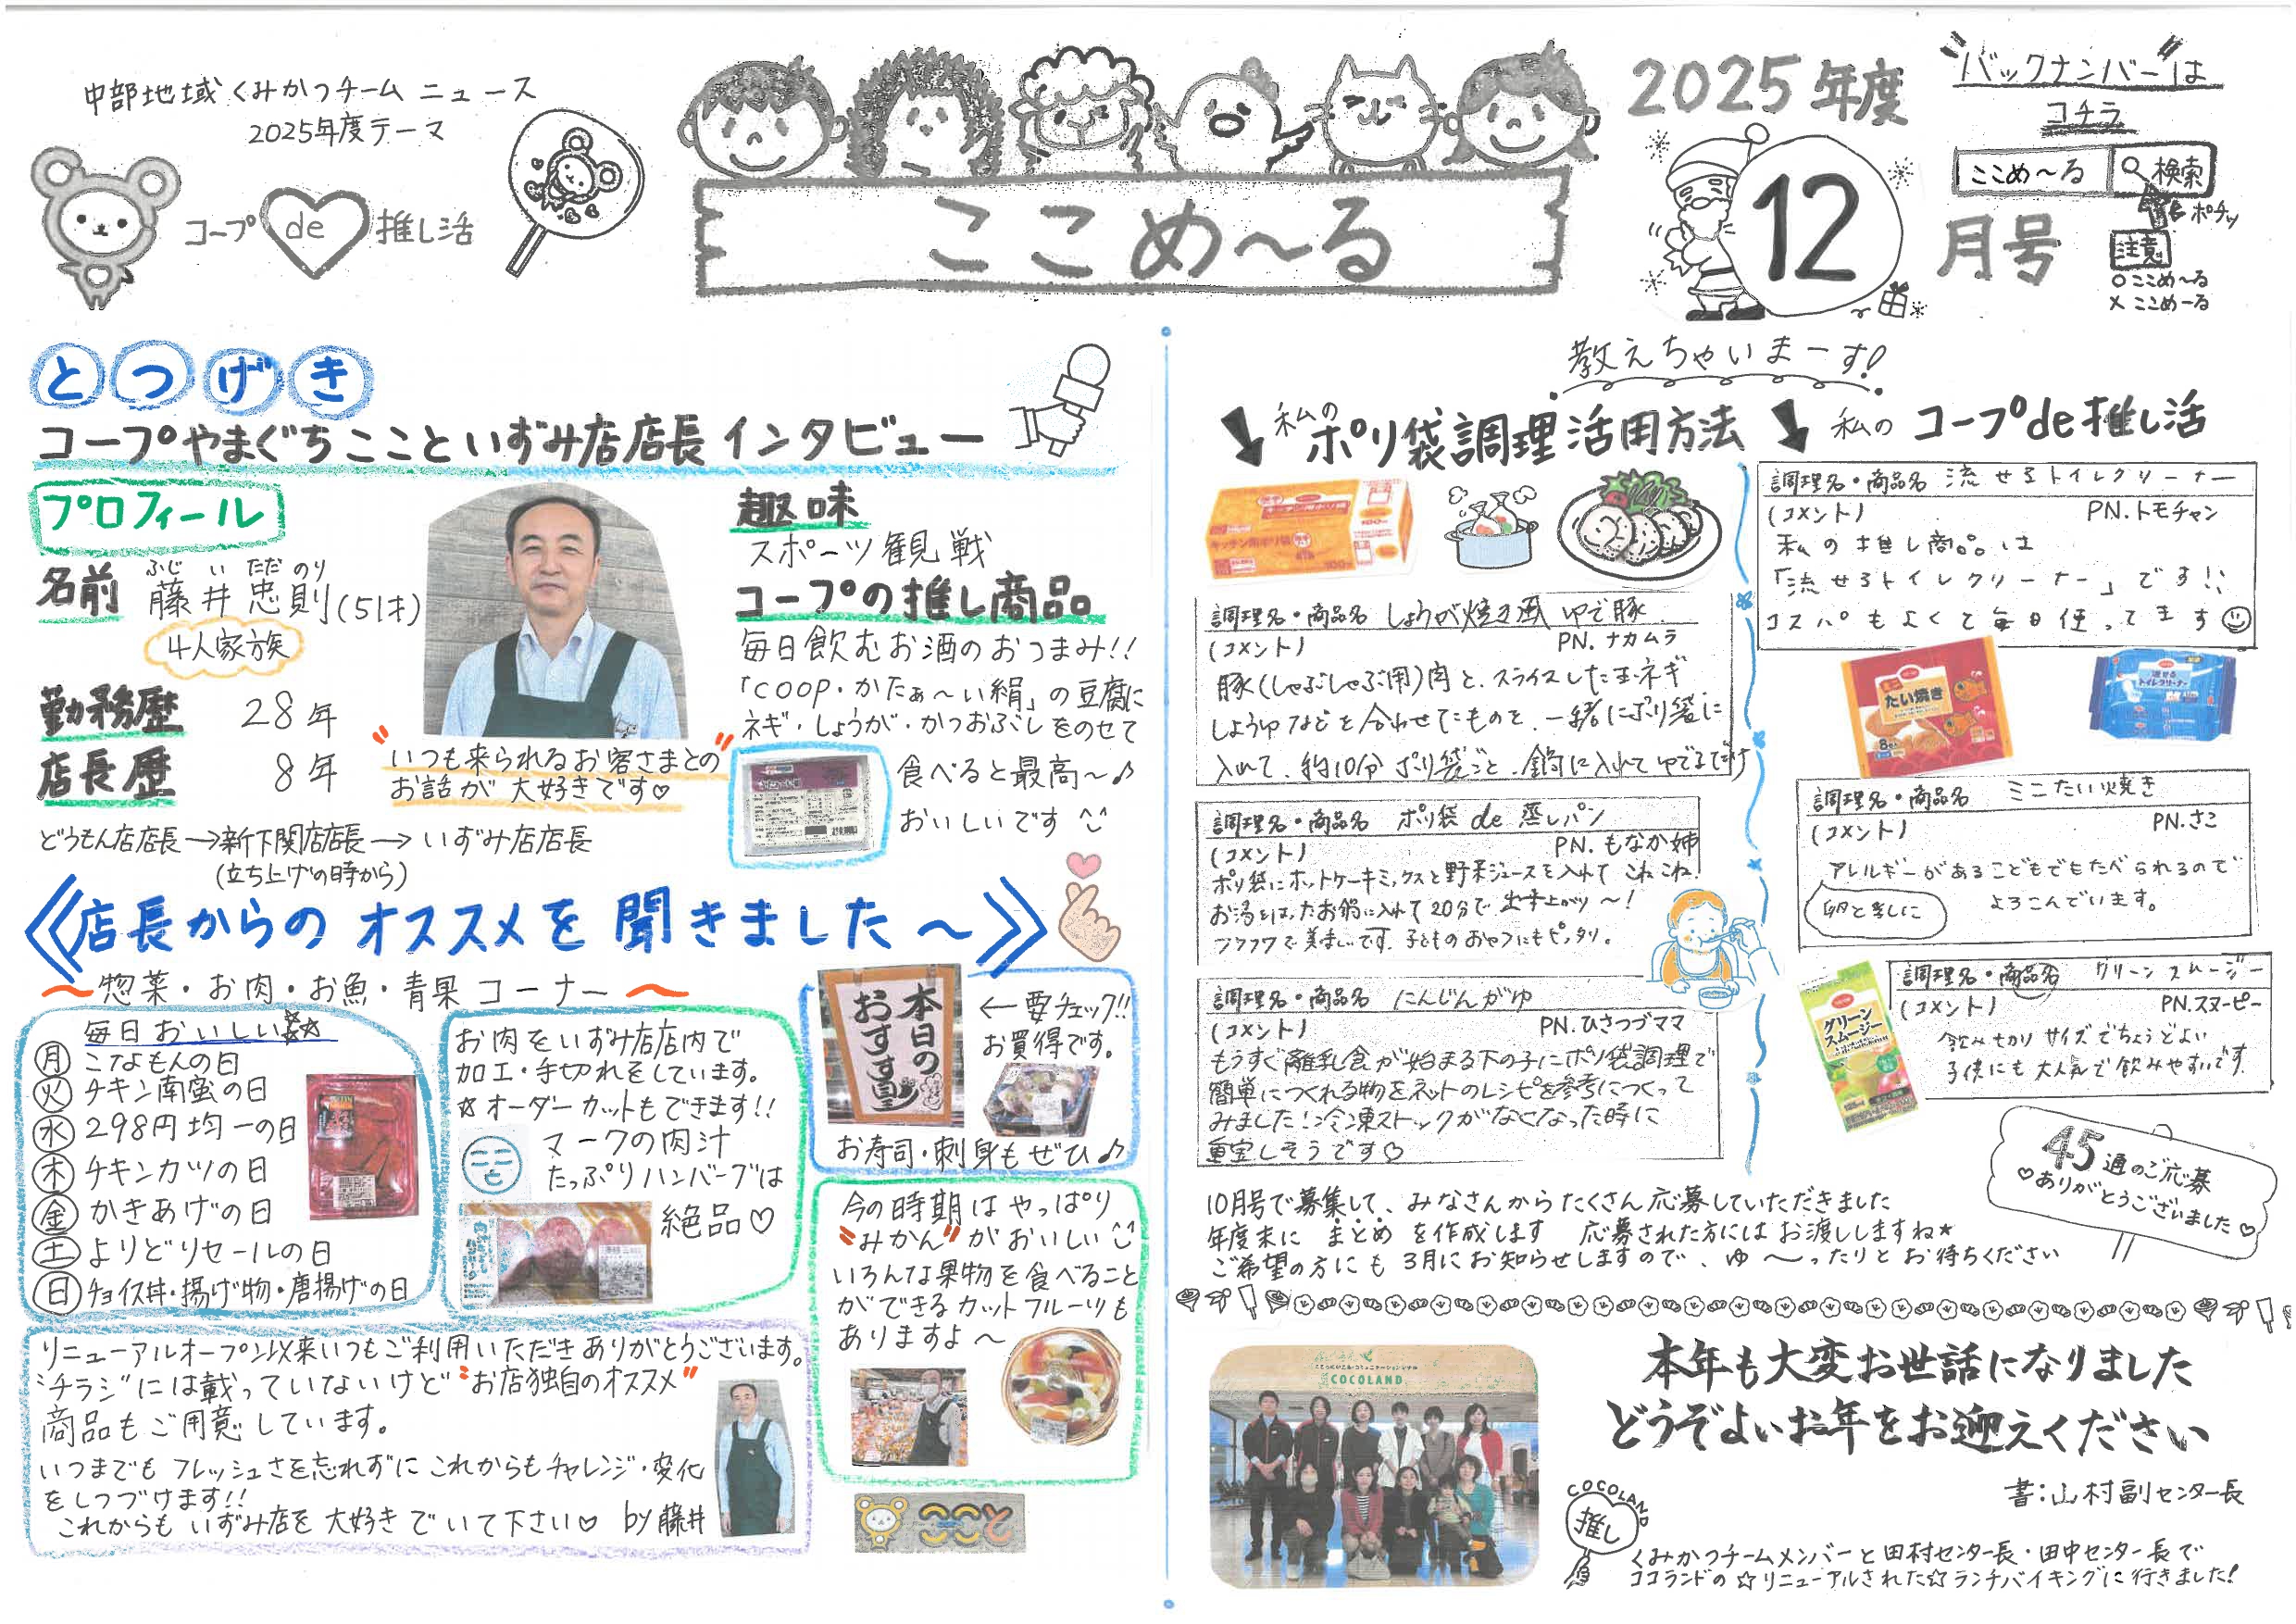 中部地域くみかつチーム ニュース
2025年度テーマ
コープ de 推し活
ここめ〜る
2025年度
12
月号
"バックナンバー"は
コチラ
ここめ〜る 検索
ポチッ
注意
○ここめ〜る
×ここめーる
とつげき
コープやまぐちここといずみ店店長インタビュー
プロフィール
ふじ い ただ のり
名前 藤井忠則(51才)
4人家族
勤務歴 28年
店長歴 8年
どうもん店店長→新下関店店長→いずみ店店長
(立ち上げの時から)
"いつも来られるお客さまとの"
お話が大好きです♡
趣味
スポーツ観戦
コープの推し商品
毎日飲むお酒のおつまみ!!
「COOP・かたぁ〜い絹」の豆腐に
ネギ・しょうが・かつおぶしをのせて
食べると最高〜♪
おいしいです
《店長からのオススメを聞きました〜》
〜惣菜・お肉・お魚・青果コーナー〜
毎日おいしい☆☆
月 こなもんの日
火 チキン南蛮の日
水 298円均一の日
木 チキンカツの日
金 かきあげの日
土 よりどりセールの日
日 チョイス丼・揚げ物・唐揚げの日
お肉をいずみ店店内で
加工・手切れをしています。
☆オーダーカットもできます!!
マークの肉汁
たっぷりハンバーグは
絶品♡
本日の
おすすめ
←要チェック!!
お買得です。
お寿司・刺身もぜひ♪
今の時期はやっぱり
"みかん"がおいしい
いろんな果物を食べること
ができるカットフルーツも
ありますよ〜
リニューアルオープン以来いつもご利用いただきありがとうございます。
"チラシ"には載っていないけど"お店独自のオススメ"
商品もご用意しています。
いつまでもフレッシュさを忘れずにこれからもチャレンジ・変化
をしつづけます!!
これからもいずみ店を大好きでいて下さい♡ by藤井
ここと
教えちゃいまーす!
私のポリ袋調理活用方法
キッチン用ポリ袋
調理名・商品名 しょうが焼き風ゆで豚
(コメント) PN.ナカムラ
豚(しゃぶしゃぶ用)肉と、スライスした玉ネギ
しょうゆなどを合わせたものを、一緒にポリ袋に
入れて、約10分ポリ袋ごと、鍋に入れてゆでるだけ
調理名・商品名 ポリ袋de蒸しパン
(コメント) PN.もなか姉
ポリ袋にホットケーキミックスと野菜ジュースを入れてこねこね!
お湯をはったお鍋に入れて20分で出来上がり〜!
フワフワで美味しいです。子どものおやつにもピッタリ。
調理名・商品名 にんじんがゆ
(コメント) PN.ひさつづママ
もうすぐ離乳食が始まる下の子にポリ袋調理で
簡単につくれる物をネットのレシピを参考につくって
みました!冷凍ストックがなくなった時に
重宝しそうです♡
私の コープde推し活
調理名・商品名 流せるトイレクリーナー
(コメント) PN.トモチャン
私の推し商品は
「流せるトイレクリーナー」です!!
コスパもよくて毎日使ってます
ミニ
たい焼き
流せる
トイレクリーナー
調理名・商品名 ミニたい焼き
(コメント) PN.さこ
アレルギーがあるこどもでもたべられるので
卵と乳に よろこんでいます。
グリーン
スムージー
調理名・商品名 グリーンスムージー
(コメント) PN.スヌーピー
飲みきりサイズでちょうどよい
子供にも大人気で飲みやすいです。
45通のご応募
♡ありがとうございました♡
10月号で募集して、みなさんからたくさん応募していただきました
年度末に まとめ を作成します 応募された方にはお渡ししますね★
ご希望の方にも3月にお知らせしますので、ゆ〜ったりとお待ちください
COCOLAND
本年も大変お世話になりました
どうぞよいお年をお迎えください
書:山村副センター長
COCOLAND
推し
くみかつチームメンバーと田村センター長・田中センター長で
ココランドの☆リニューアルされた☆ランチバイキングに行きました!